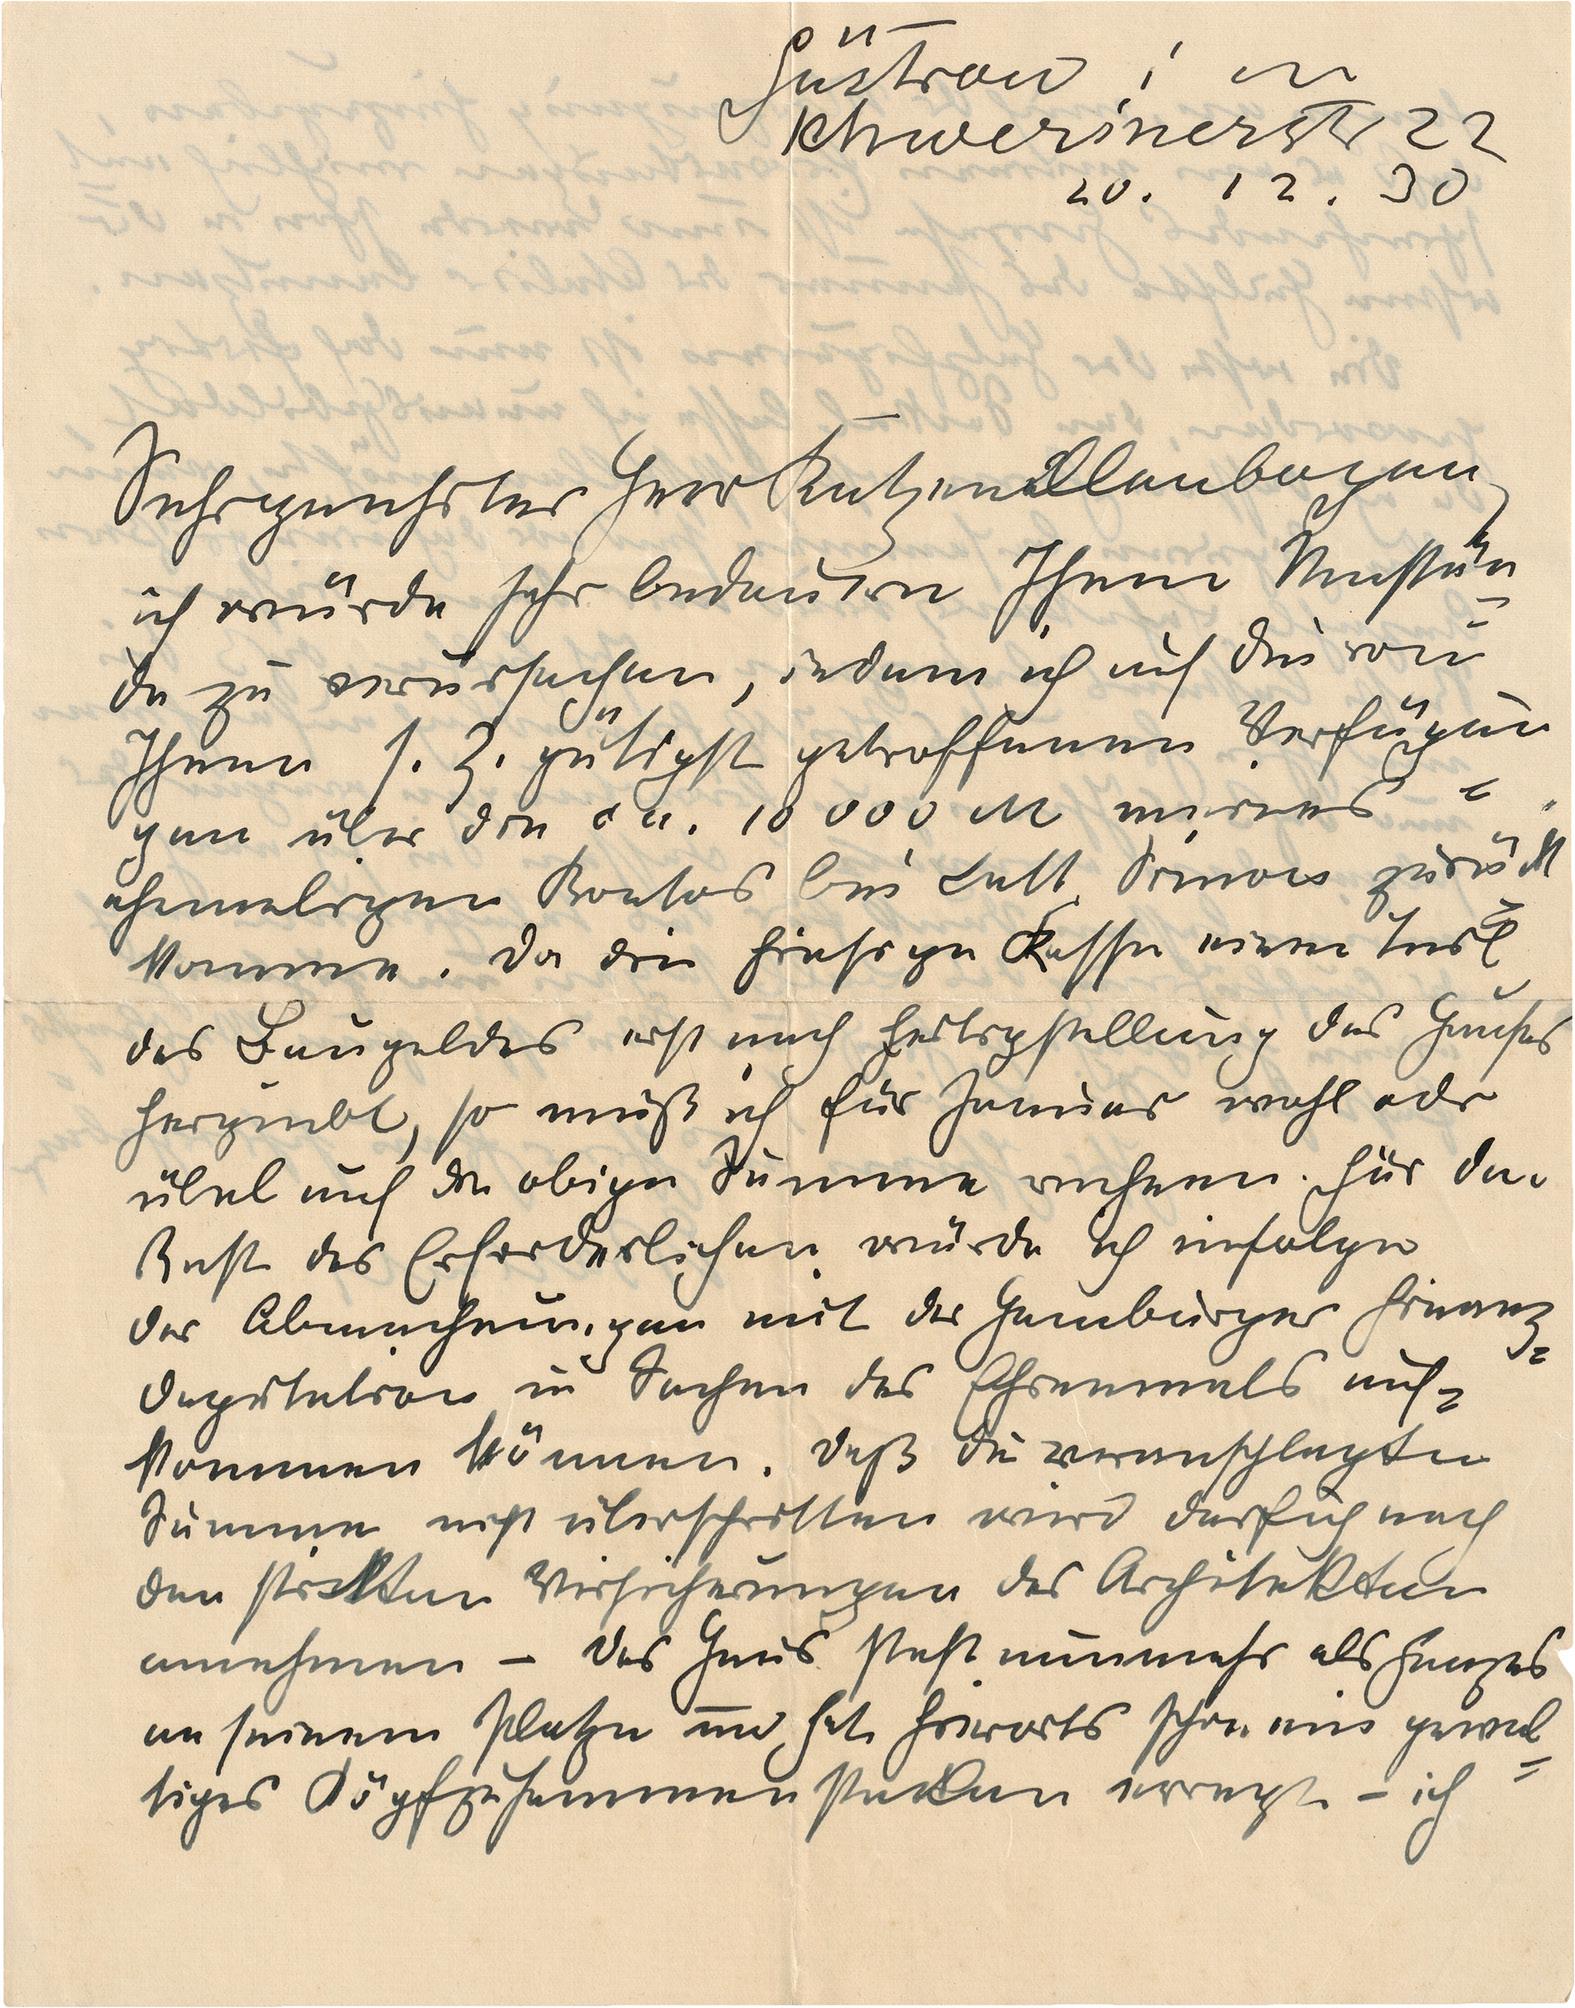 Güstrow i M
Schwerinerstr 22
20. 12. 30
Sehrgeehrter Herr Katzenellenbogen
ich würde sehr bedauern Ihnen Umstän-
de zu verursachen, indem ich auf die von
Ihnen s. Z. gütigst getroffenen Verfügun
gen über die ca. 10 000 M meines
ehemaligen Kontos bei Cass. zurück
komme. Da die hiesige Kasse einen Teil
des Baugeldes erst nach Fertigstellung des Hauses
hergiebt, so muß ich für Januar wohl oder
übel auf die obige Summe rechnen. Für den
Rest des Erforderlichen würde ich infolge
der Abmachungen mit der Hamburger Finanz-
deputation in Sachen des Ehrenmals auf-
kommen können. Daß die veranschlagte
Summe nicht überschritten wird darf ich nach
den strikten Versicherungen des Architekten
annehmen – das Haus steht nunmehr als Ganzes
an seinem Platze und hat hierorts schon ein gewal-
tiges Köpfzusammenstecken erregt – ich